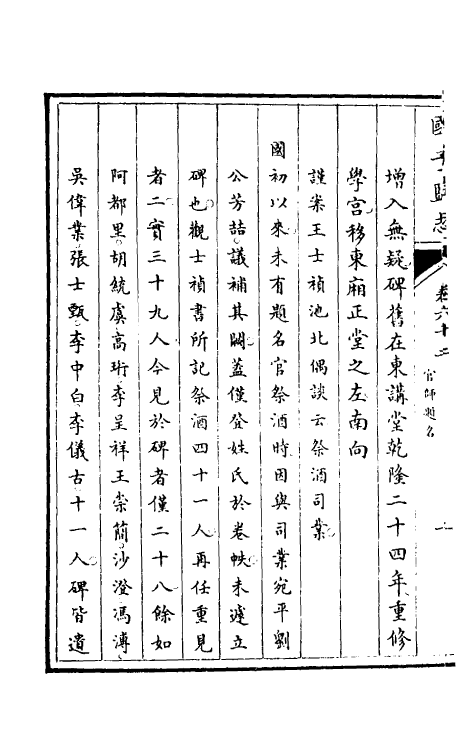 國子監志
卷六十二
官師題名
一
增入無疑碑舊在東講堂乾隆二十四年重修
學宮移東廂正堂之左南向
謹案王士禎池北偶談云祭酒司業
國初以來未有題名官祭酒時因與司業宛平劉
公芳喆議補其闕葢僅登姓氏於卷帙未遽立
碑也觀士禎書所記祭酒四十一人再任重見
者二實三十九人今見於碑者僅二十八餘如
阿都里胡統虞高珩李呈祥王崇簡沙澄馮溥
吳偉業張士甄李中白李儀古十一人碑皆遺